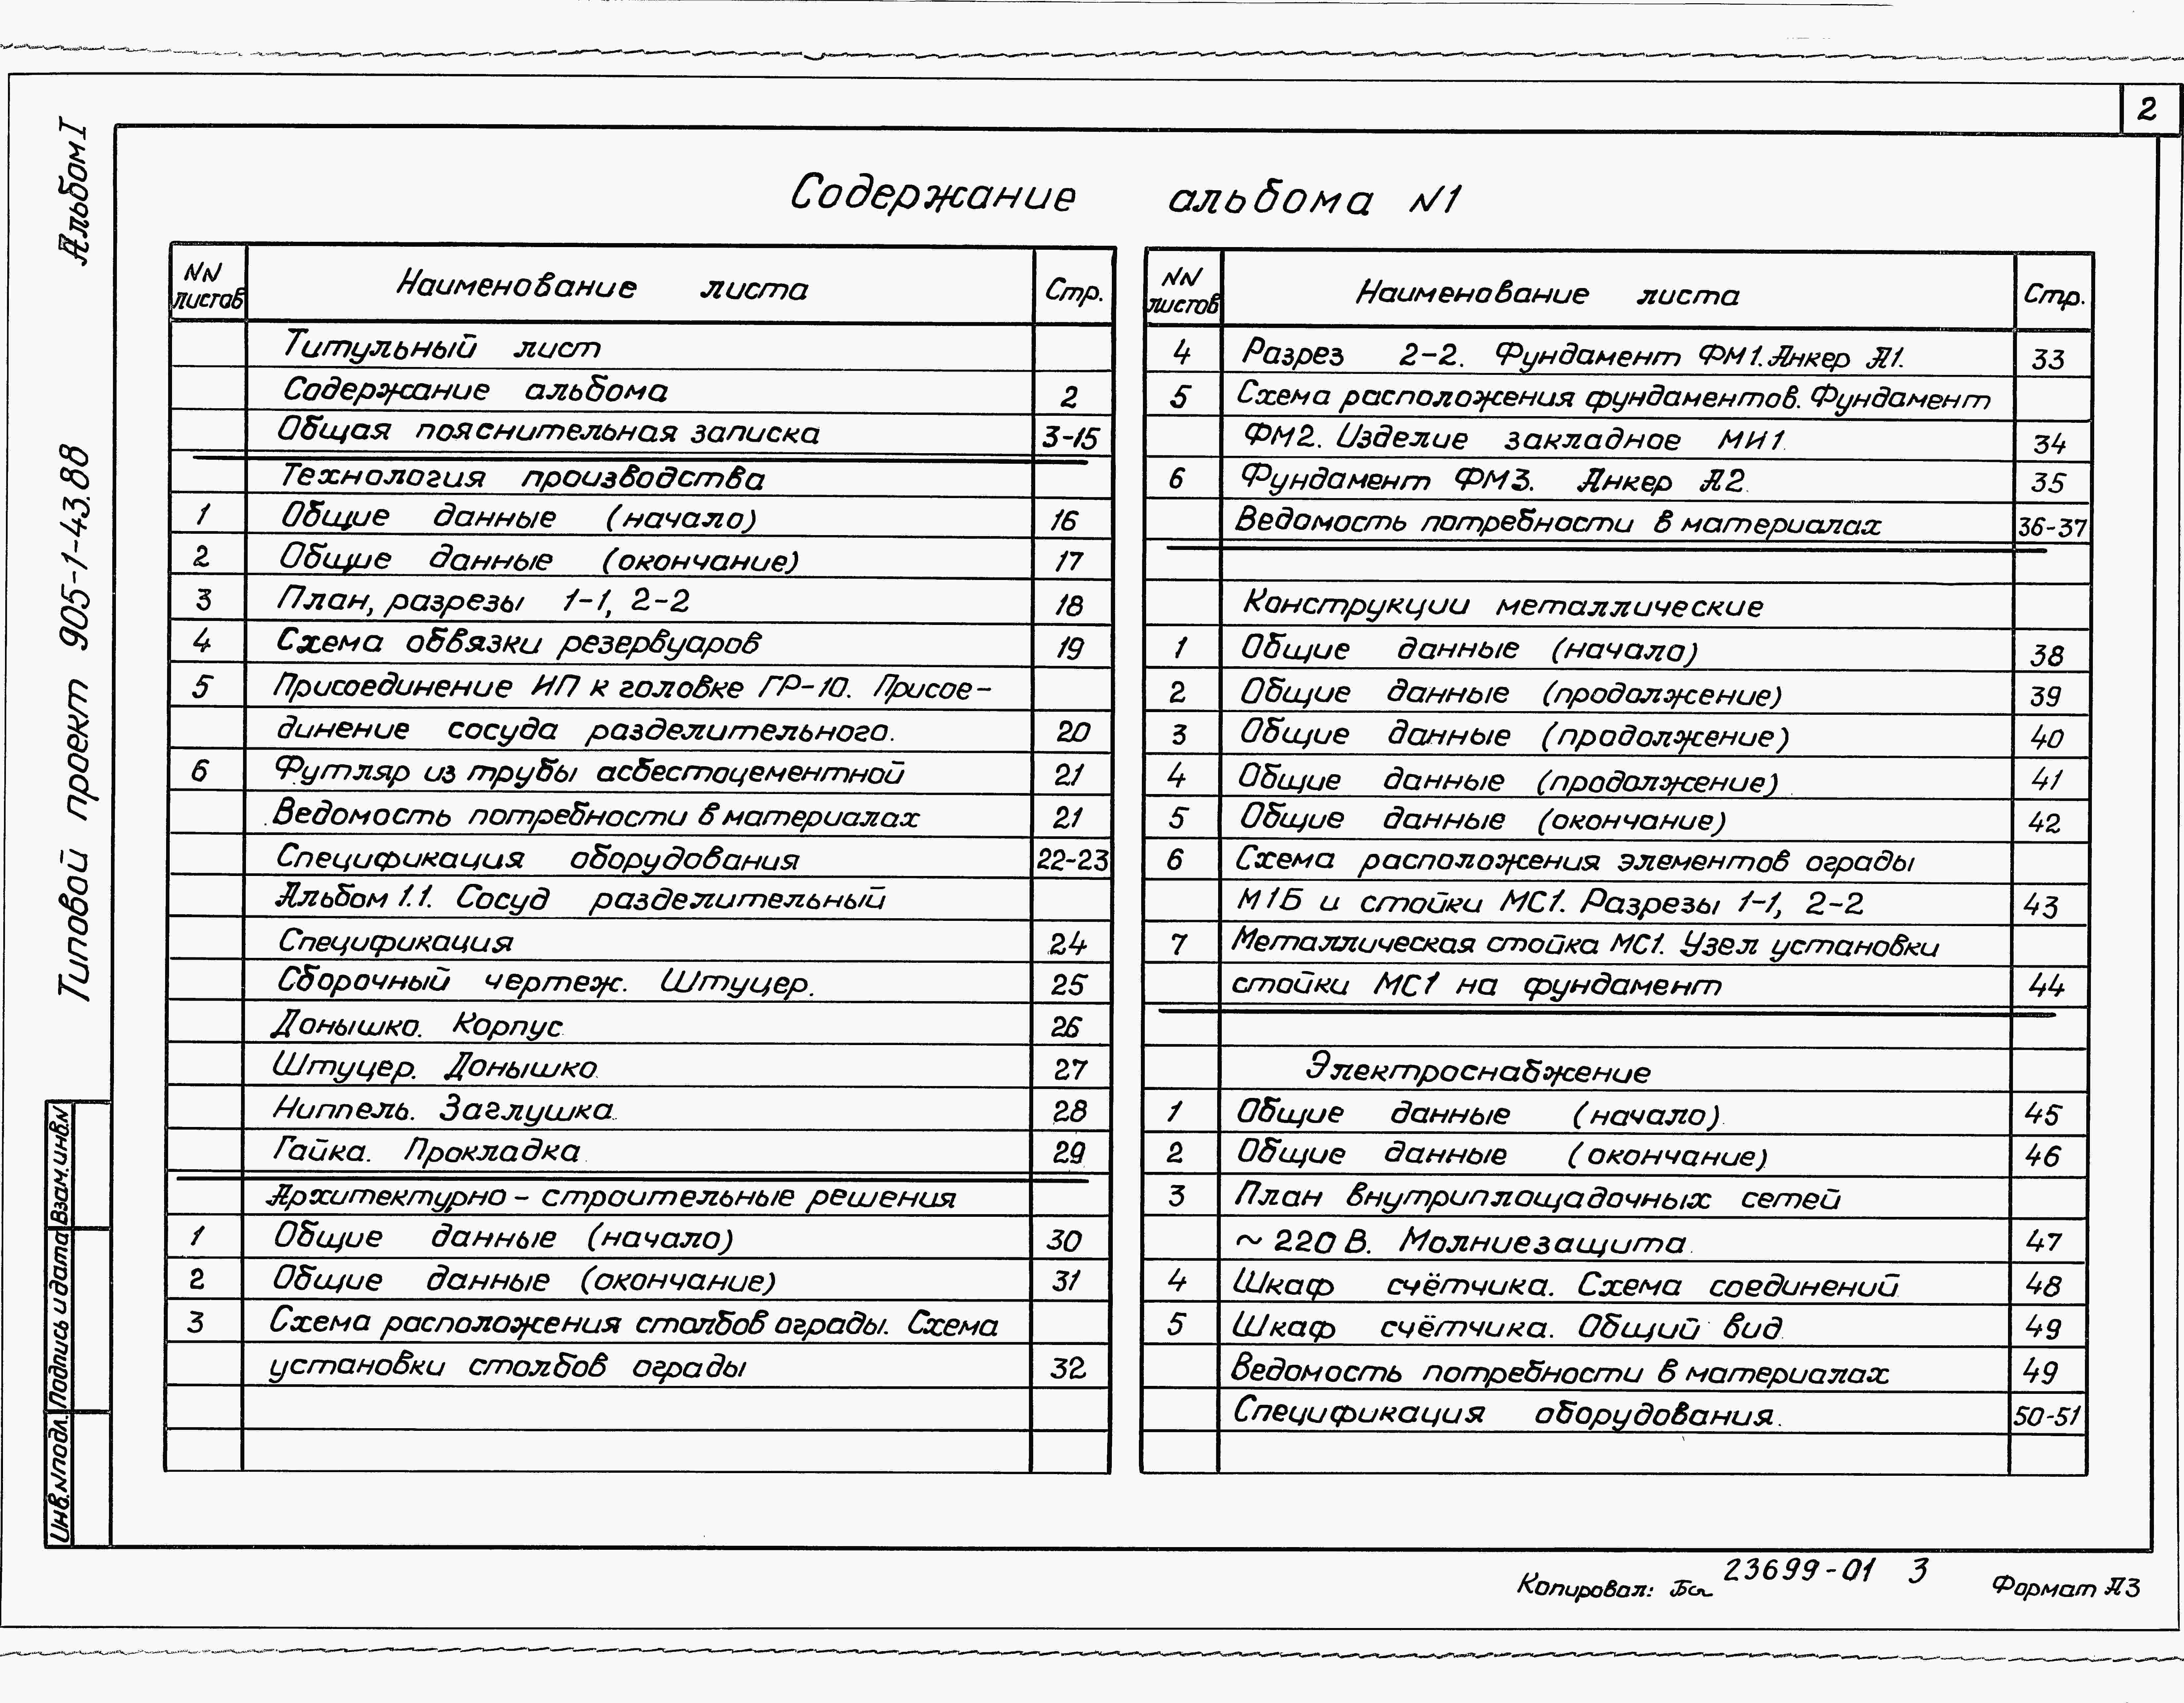 2
Альбом I
Типовой проект 905-1-43.88
Содержание альбома N1
NN листов Наименование листа Стр.
Титульный лист
Содержание альбома 2
Общая пояснительная записка 3-15
Технология производства
1 Общие данные (начало) 16
2 Общие данные (окончание) 17
3 План, разрезы 1-1, 2-2 18
4 Схема обвязки резервуаров 19
5 Присоединение ИП к головке ГР-10. Присое-
динение сосуда разделительного. 20
6 Футляр из трубы асбестоцементной 21
Ведомость потребности в материалах 21
Спецификация оборудования 22-23
Альбом 1.1. Сосуд разделительный
Спецификация 24
Сборочный чертеж. Штуцер. 25
Донышко. Корпус. 26
Штуцер. Донышко. 27
Ниппель. Заглушка. 28
Гайка. Прокладка. 29
Архитектурно-строительные решения
1 Общие данные (начало) 30
2 Общие данные (окончание) 31
3 Схема расположения столбов ограды. Схема
установки столбов ограды 32
NN листов Наименование листа Стр.
4 Разрез 2-2. Фундамент ФМ1. Анкер А1. 33
5 Схема расположения фундаментов. Фундамент
ФМ2. Изделие закладное МИ1. 34
6 Фундамент ФМ3. Анкер А2. 35
Ведомость потребности в материалах 36-37
Конструкции металлические
1 Общие данные (начало) 38
2 Общие данные (продолжение) 39
3 Общие данные (продолжение) 40
4 Общие данные (продолжение) 41
5 Общие данные (окончание) 42
6 Схема расположения элементов ограды
М1Б и стойки МС1. Разрезы 1-1, 2-2 43
7 Металлическая стойка МС1. Узел установки
стойки МС1 на фундамент 44
Электроснабжение
1 Общие данные (начало). 45
2 Общие данные (окончание). 46
3 План внутриплощадочных сетей
~ 220 В. Молниезащита. 47
4 Шкаф счётчика. Схема соединений. 48
5 Шкаф счётчика. Общий вид. 49
Ведомость потребности в материалах 49
Спецификация оборудования. 50-51
Инв.N подл. Подпись и дата Взам.инв.N
Копировал: 23699-01 3 Формат А3